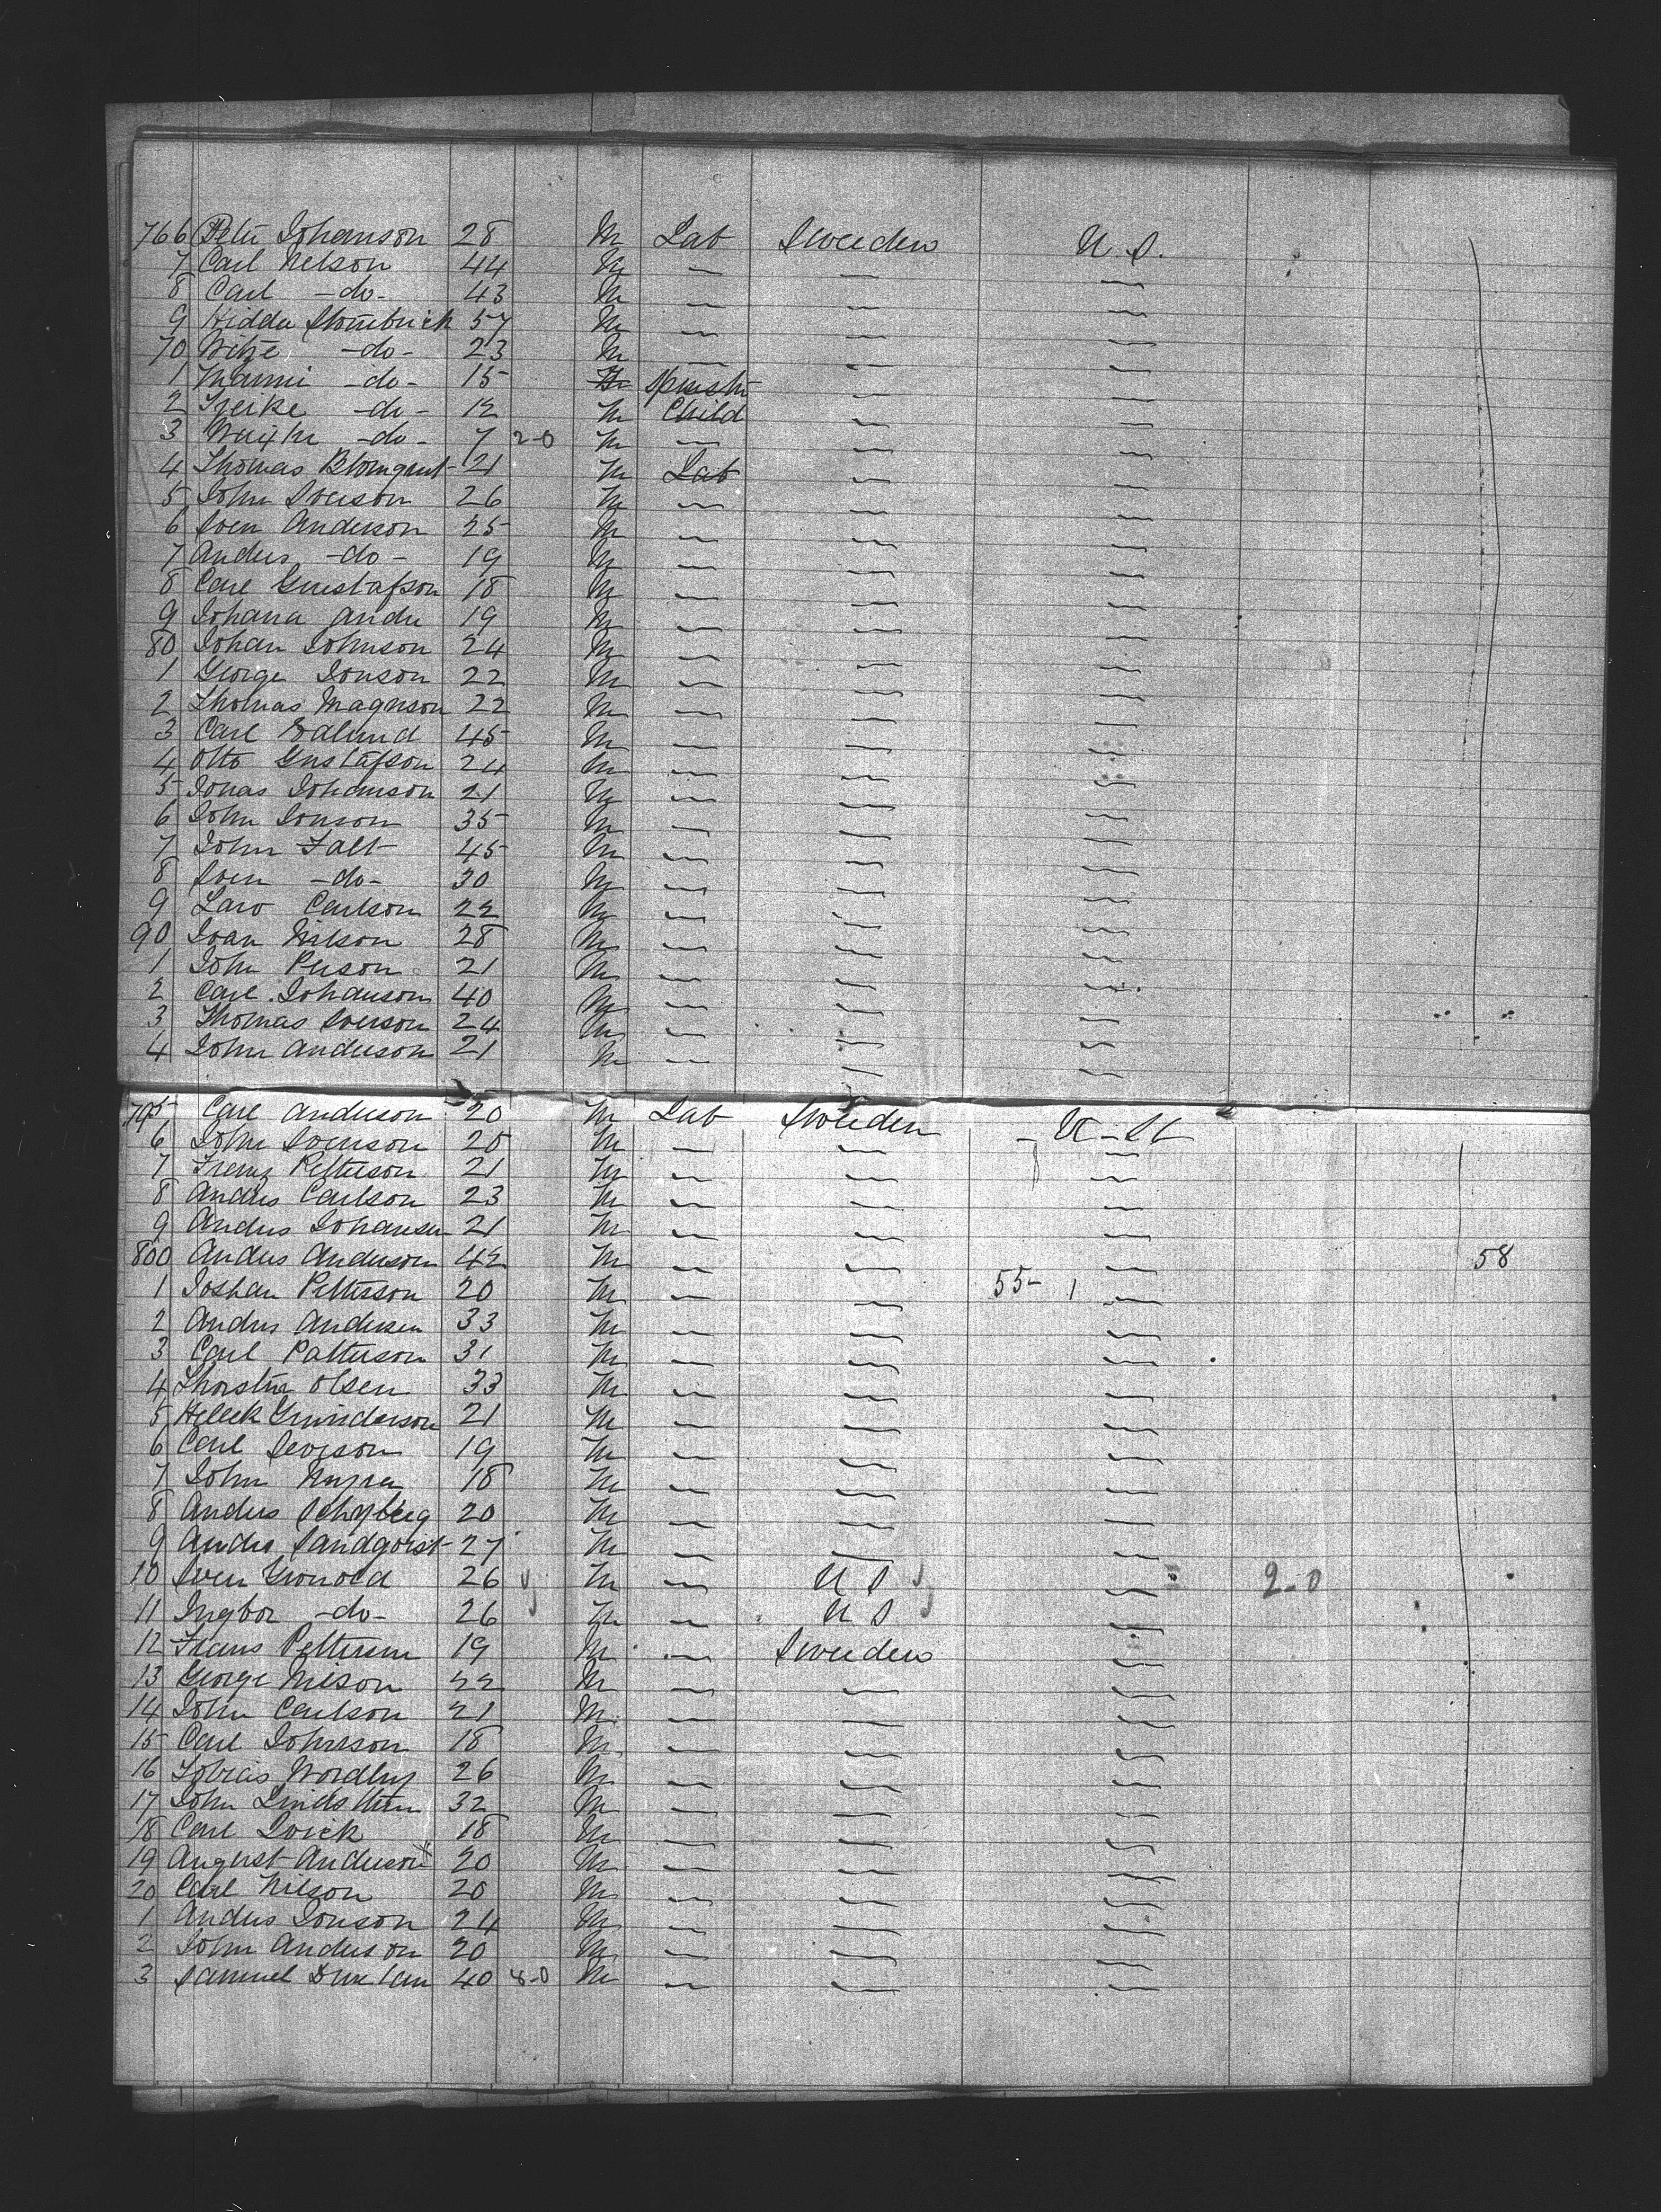 766 Peter Johanson 28 M Lab Sweden U.S.
7 Carl Nelson 44 M — — —
8 Carl -do- 43 M — — —
9 Hidde 57 M — — —
70 -do- 23 M — — —
1 -do- 15 — —
2 -do- 12 M Child — —
3 -do- 7 2-0 M — — —
4 Thomas Blomqust 21 M Lab — —
5 John Svenson 26 M — — —
6 Sven Anderson 25 M — — —
7 Anders -do- 19 M — — —
8 Carl Gustafson 18 M — — —
9 Johana Andr 19 M — — —
80 Johan Johnson 24 M — — —
1 George Jonson 22 M — — —
2 Thomas Magnson 22 M — — —
3 Carl Edlund 45 M — — —
4 Otto Gustafson 24 M — — —
5 Jonas Johanson 21 M — — —
6 John Jonson 35 M — — —
7 John Falt 45 M — — —
8 Sven -do- 30 M — — —
9 Lars Carlson 22 M — — —
90 Nilson 28 M — — —
1 John Person 21 M — — —
2 Carl Johanson 40 M — — —
3 Thomas Sverson 24 M — — —
4 John Anderson 21 M — — —
795 Carl Anderson 20 M Lab Sweden - U-St
6 John Svenson 25 M — — —
7 Franz Petterson 21 M — — —
8 Anders Carlson 23 M — — —
9 Anders Johansen 21 M — — —
800 Anders Anderson 42 M — — — 58
1 Joshan Petterson 20 M — — 55- 1 —
2 Anders Andersen 33 M — — —
3 Carl Patterson 31 M — — —
4 Olsen 33 M — — —
5 Gunderson 21 M — — —
6 Carl 19 M — — —
7 John 18 M — — —
8 Anders 20 M — — —
9 Anders Sandqvist 27 M — — —
10 Sven 26 M — U S — 2-0
11 Ingbor -do- 26 M — U S
12 Frans Petterson 19 M — Sweden —
13 George Nilson 22 M — — —
14 John Carlson 21 M — — —
15 Carl Johnson 18 M — — —
16 Tobias 26 M — — —
17 John 32 M — — —
18 Carl 18 M — — —
19 August Anderson 20 M — — —
20 Carl Nilson 20 M — — —
1 Anders Jonson 24 M — — —
2 John Anderson 20 M — — —
3 Samuel 40 8-0 M — — —